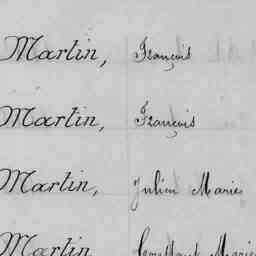 Martin, François
Martin, François
Martin, Julien Marie
Martin Constant Marie